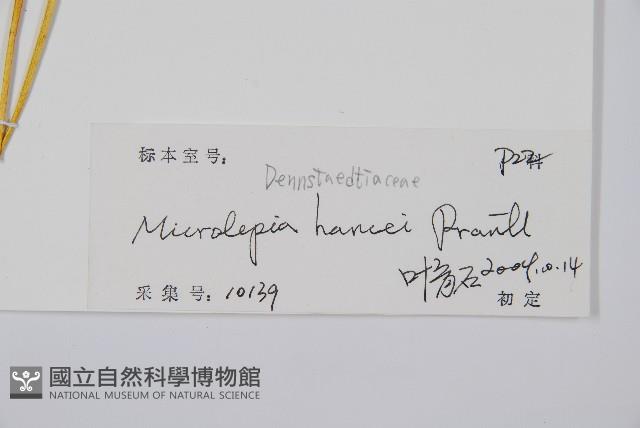 标本室号: P22科
Dennstaedtiaceae
Microlepia hancei Prantl
叶育石 2004.10.14
采集号: 10139 初定
國立自然科學博物館
NATIONAL MUSEUM OF NATURAL SCIENCE